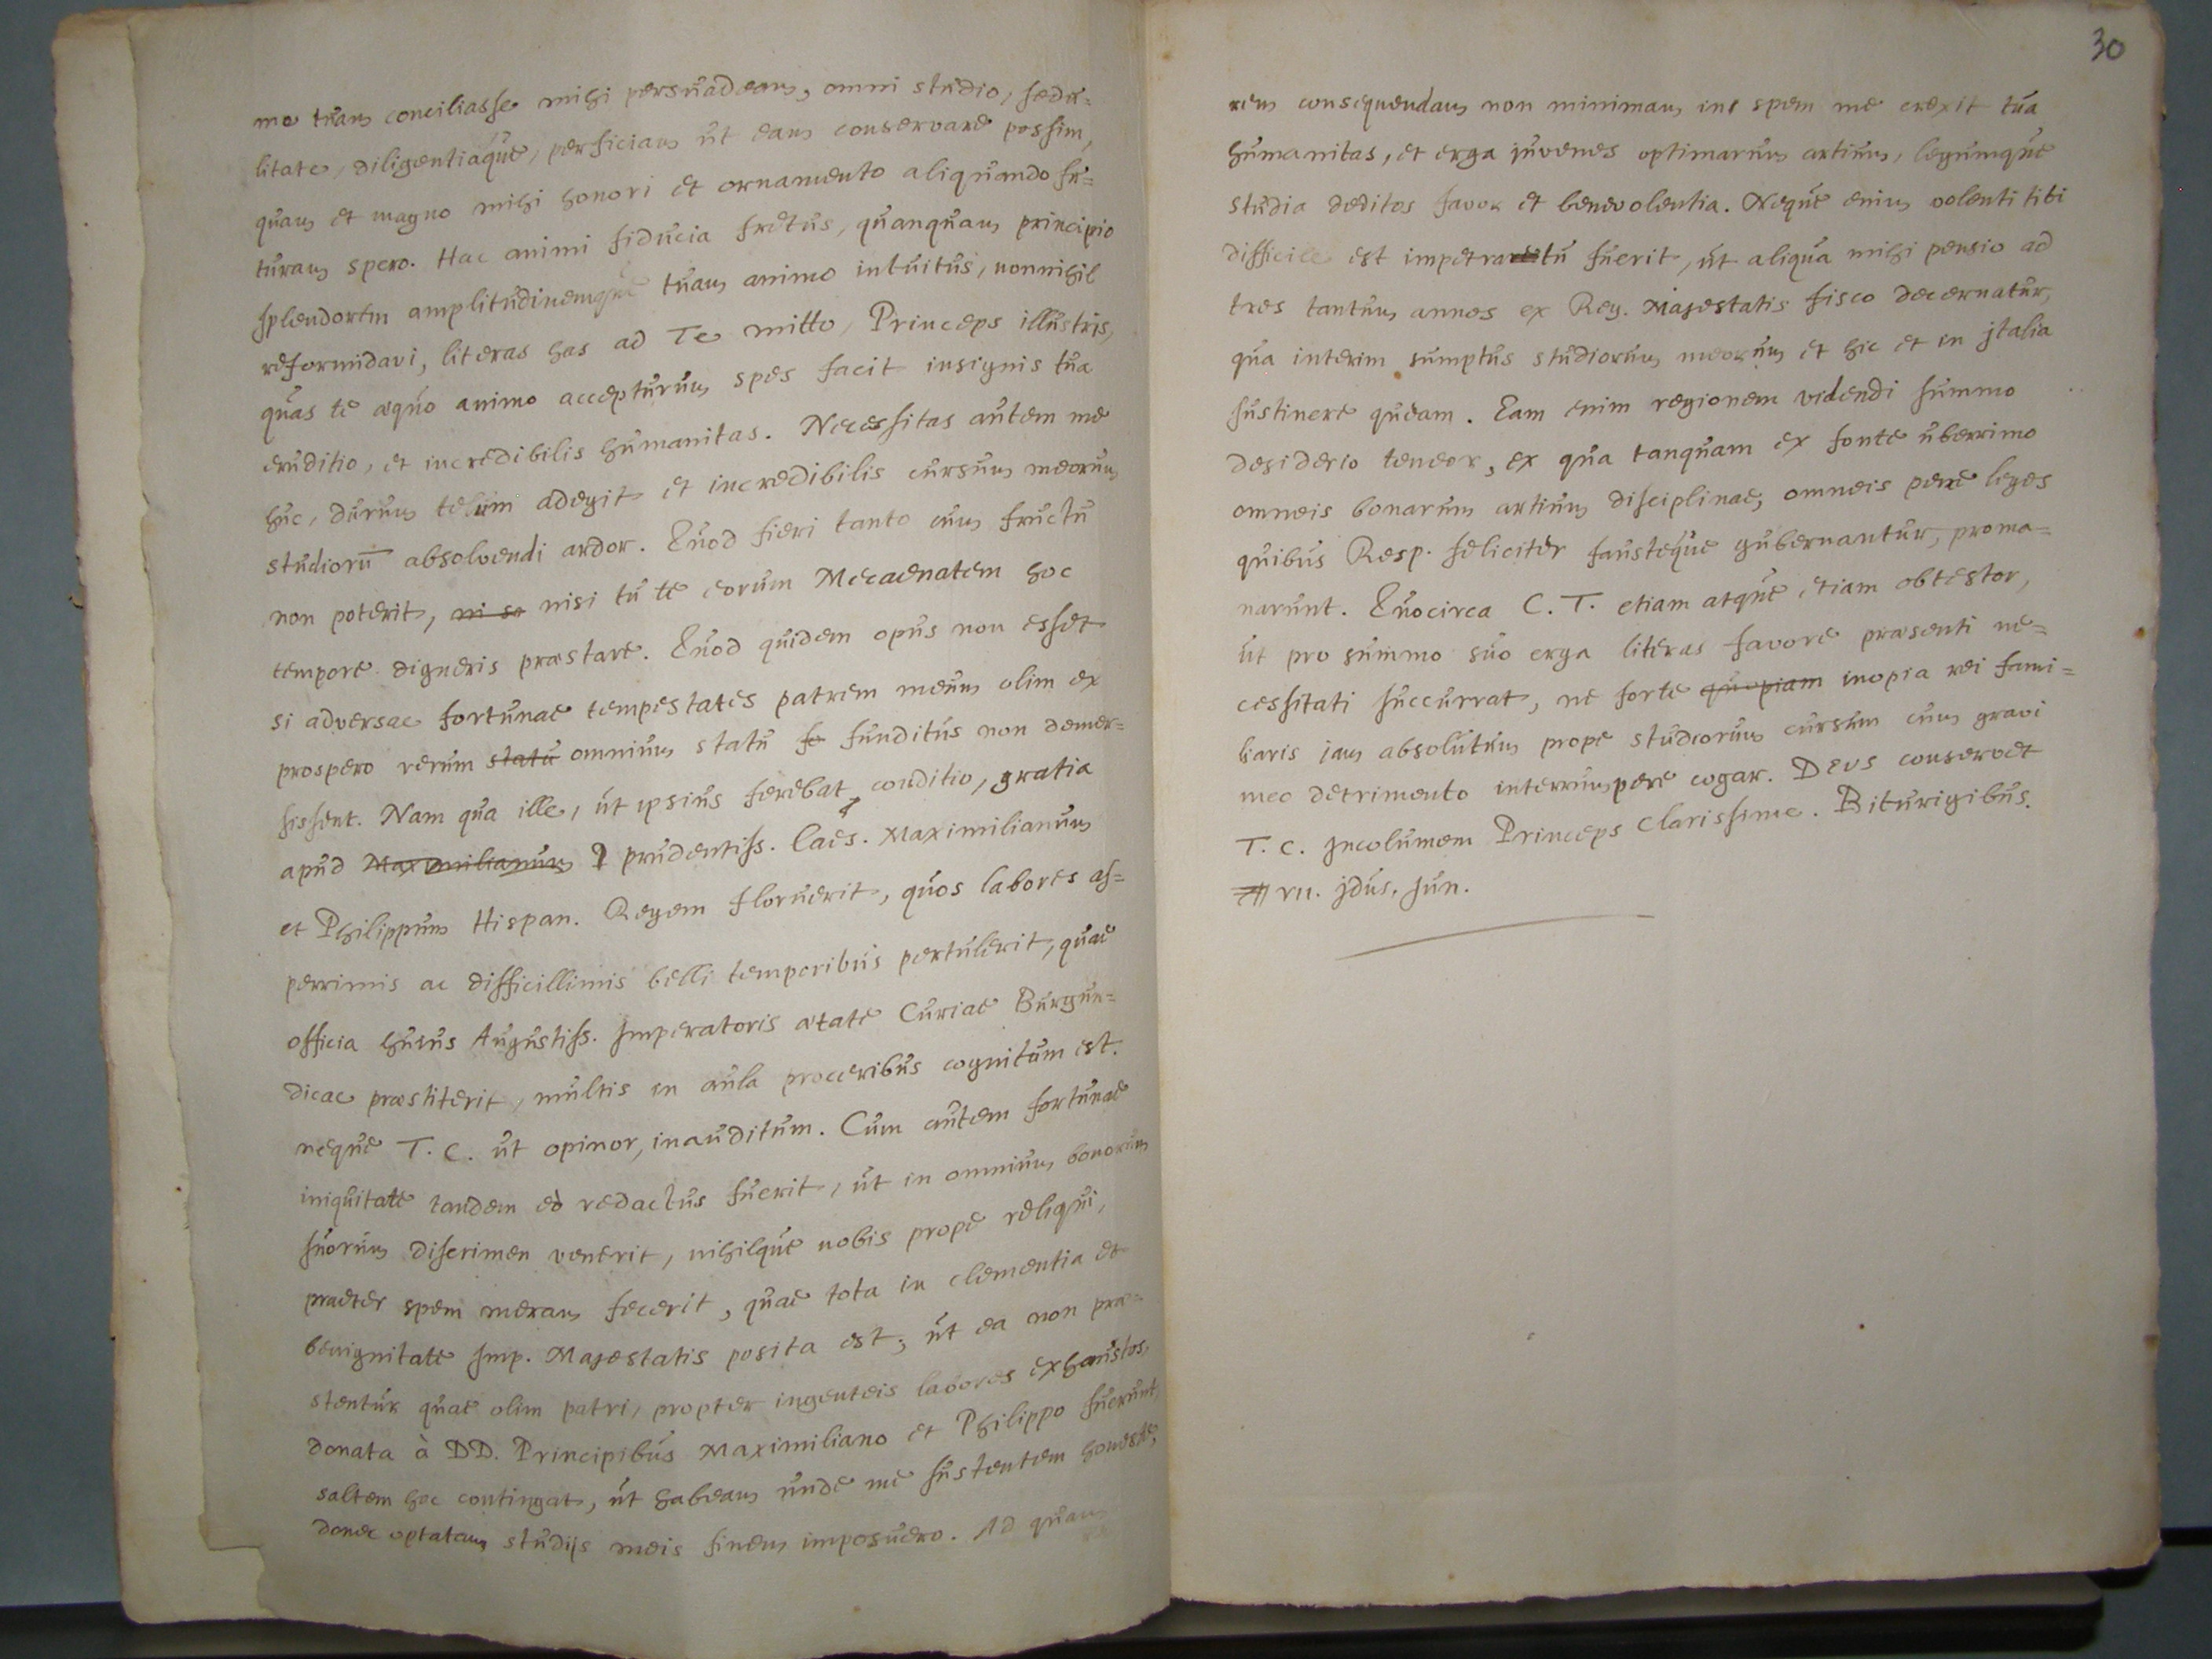 mo tuam conciliasse mihi persuadeam, omni studio, sedu=
litate, diligentiaque, perficiam ut eam conservare possim,
quam et magno mihi honori et ornamento aliquando fu=
turam spero. Hac animi fiducia fretus, quanquam principio
splendorem amplitudinemque tuam animo intuitus, nonnihil
reformidavi, literas has ad Te mitto, Princeps illustris,
quas te aequo animo accepturum spes facit insignis tua
eruditio, et incredibilis humanitas. Necessitas autem me
huc, durum telum adegit et incredibilis cursum meorum
studiorū absolvendi ardor. Quod fieri tanto cum fructu
non poterit, ni se nisi tu te eorum Mecaenatem hoc
tempore digneris praestare. Quod quidem opus non esset
si adversae fortunae tempestates patrem meum olim ex
prospero rerum statu omnium statu fo funditus non demer=
sissent. Nam qua ille, ut ipsius ferebat conditio, gratia
apud Maximilianum prudentiss. Caes. Maximilianum
et Philippum Hispan. Regem floruerit, quos labores as=
perrimis ac difficillimis belli temporibus pertulerit, quae
officia huius Augustiss. Imperatoris aetate Curiae Burgun=
dicae praestiterit, multis in aula proceribus cognitum est.
neque T. C. ut opinor, inauditum. Cum autem fortunae
iniquitate tandem eò redactus fuerit, ut in omnium bonorum
suorum discrimen venerit, nihilque nobis prope reliqui,
praeter spem meram fecerit, quae tota in clementia et
benignitate Imp. Majestatis posita est; ut ea non prae=
stentur quae olim patri, propter ingenteis labores exhaustos,
donata à DD. Principibus Maximiliano et Philippo fuerunt,
saltem hoc contingat, ut habeam unde me sustentem honeste,
donec optatam studijs meis finem imposuero. Ad quam
30
rem consequendam non minimam in spem me erexit tua
humanitas, et erga juvenes optimarum artium, legumque
studia deditos favor et benevolentia. Neque enim volenti tibi
difficile est impetratu fuerit, ut aliqua mihi pensio ad
tres tantum annos ex Reg. Majestatis fisco decernatur,
qua interim sumptus studiorum meorum et hic et in Italia
sustinere queam. Eam enim regionem videndi summo
desiderio teneor, ex qua tanquam ex fonte uberrimo
omneis bonarum artium disciplinae, omneis pene leges
quibus Resp. feliciter fausteque gubernantur, proma=
narunt. Quocirca C. T. etiam atque etiam obtestor,
ut pro summo suo erga literas favore praesenti ne=
cessitati succurrat, ne forte quopiam inopia rei fami=
liaris iam absolutum prope studiorum cursum cum gravi
meo detrimento interrumpere cogar. Deus conservet
T. C. Incolumem Princeps Clarissime. Biturigibus.
VII. Idus. Jun.